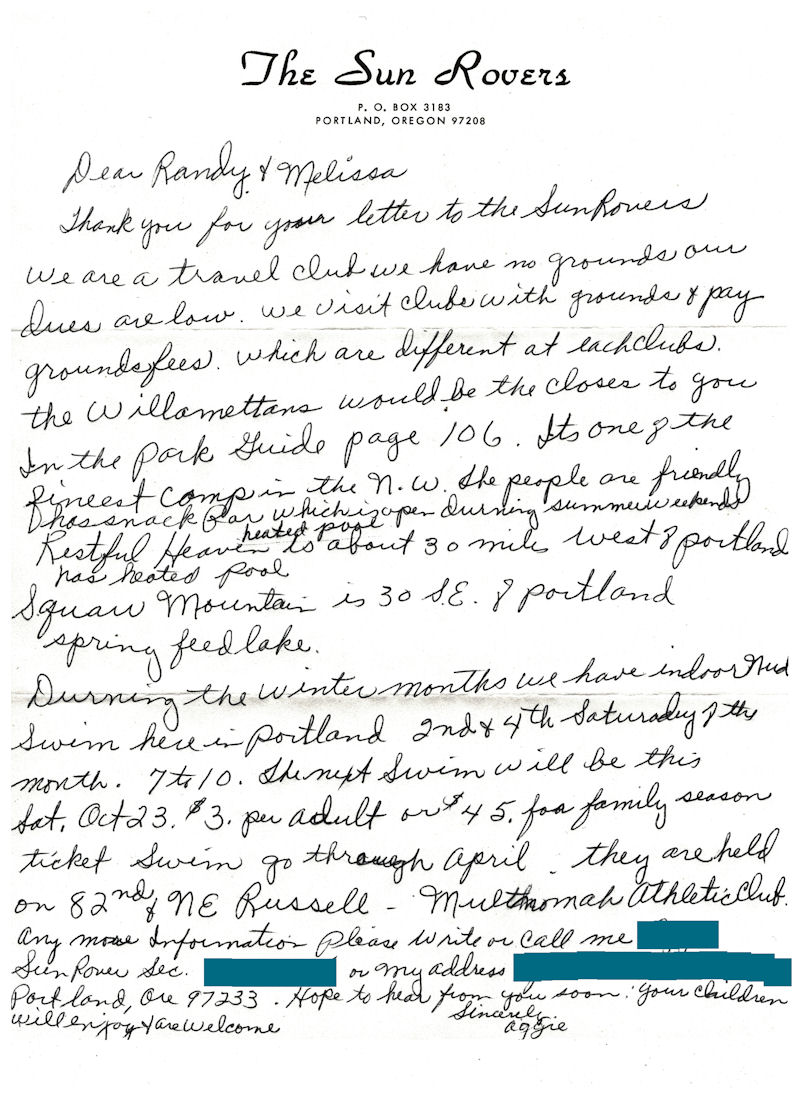 The Sun Rovers
P. O. BOX 3183
PORTLAND, OREGON 97208
Dear Randy & Melissa
Thank you for your letter to the SunRovers
We are a travel club we have no grounds our
dues are low. we visit clubs with grounds & pay
grounds fees. which are different at each clubs.
the Willamettans would be the closes to you
In the park Guide page 106. Its one of the
fineest camp in the N.W. the people are friendly
& has snack bar which is open durning summer weekends
heated pool
Restful Heaven is about 30 miles west of portland
has heated pool
Squaw Mountain is 30 S.E. of portland
spring feed lake.
Durning the winter months we have indoor Nud
Swim here in portland 2nd & 4th Saturaday of the
month. 7 to 10. The next Swim will be this
Sat, Oct 23. $3. per adult or $45. foa family season
ticket Swim go through April. they are held
on 82nd & NE Russell - Multnomah Athletic Club.
Any more Information please write or call me
Sun Rover Sec. or my address
Portland, Ore 97233. Hope to hear from you soon. Your children
will enjoy & are welcome
Sincerely
Aggie